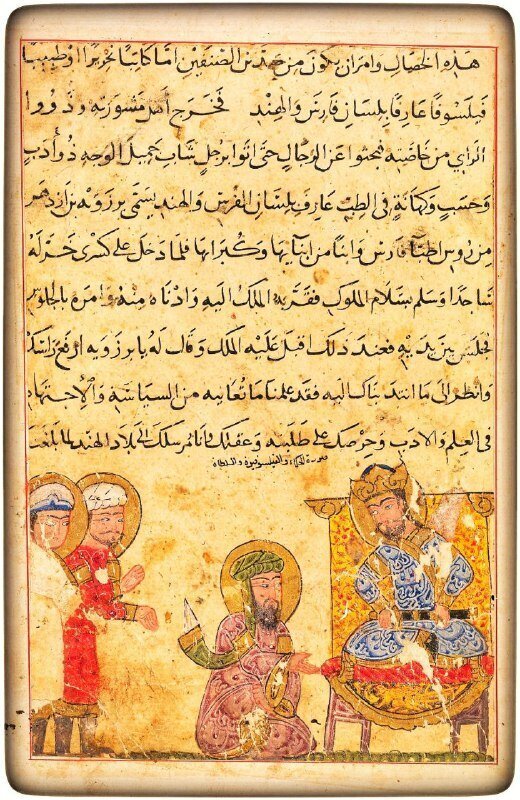 هذه الخصال وامران يكون من احد من الصنفين اما كاتبا نحريرا او طبيبا
فيلسوفا عارفا بلسان فارس والهند فخرج اهل مشورته وذووا
الراي من خاصته فبحثوا عن الرجال حتى اتوا برجل شاب جميل الوجه ذو أدب
وحسب وكهانة في الطب عارف بلسان الفرس والهند يسمى برزويه بن ازدهر
من روس اطبآ فارس وابنا من ابنايها وكبرايها فلما دخل على كسرى خر له
ساجدا وسلم بسلام الملوك فقربه الملك اليه وادناه منه وامره بالجلوس
فجلس بين يديه فعند ذلك اقبل عليه الملك وقال له يا برزويه ارفع راسك
وانظر الى ما انتدبناك اليه فقد علمنا ما تعانيه من السياسة والاجتهاد
في العلم والادب وحرصك على طلبته وعقلك وانا نرسلك الى بلاد الهند لما بلغنا
صورة الحكماء والفيلسوف